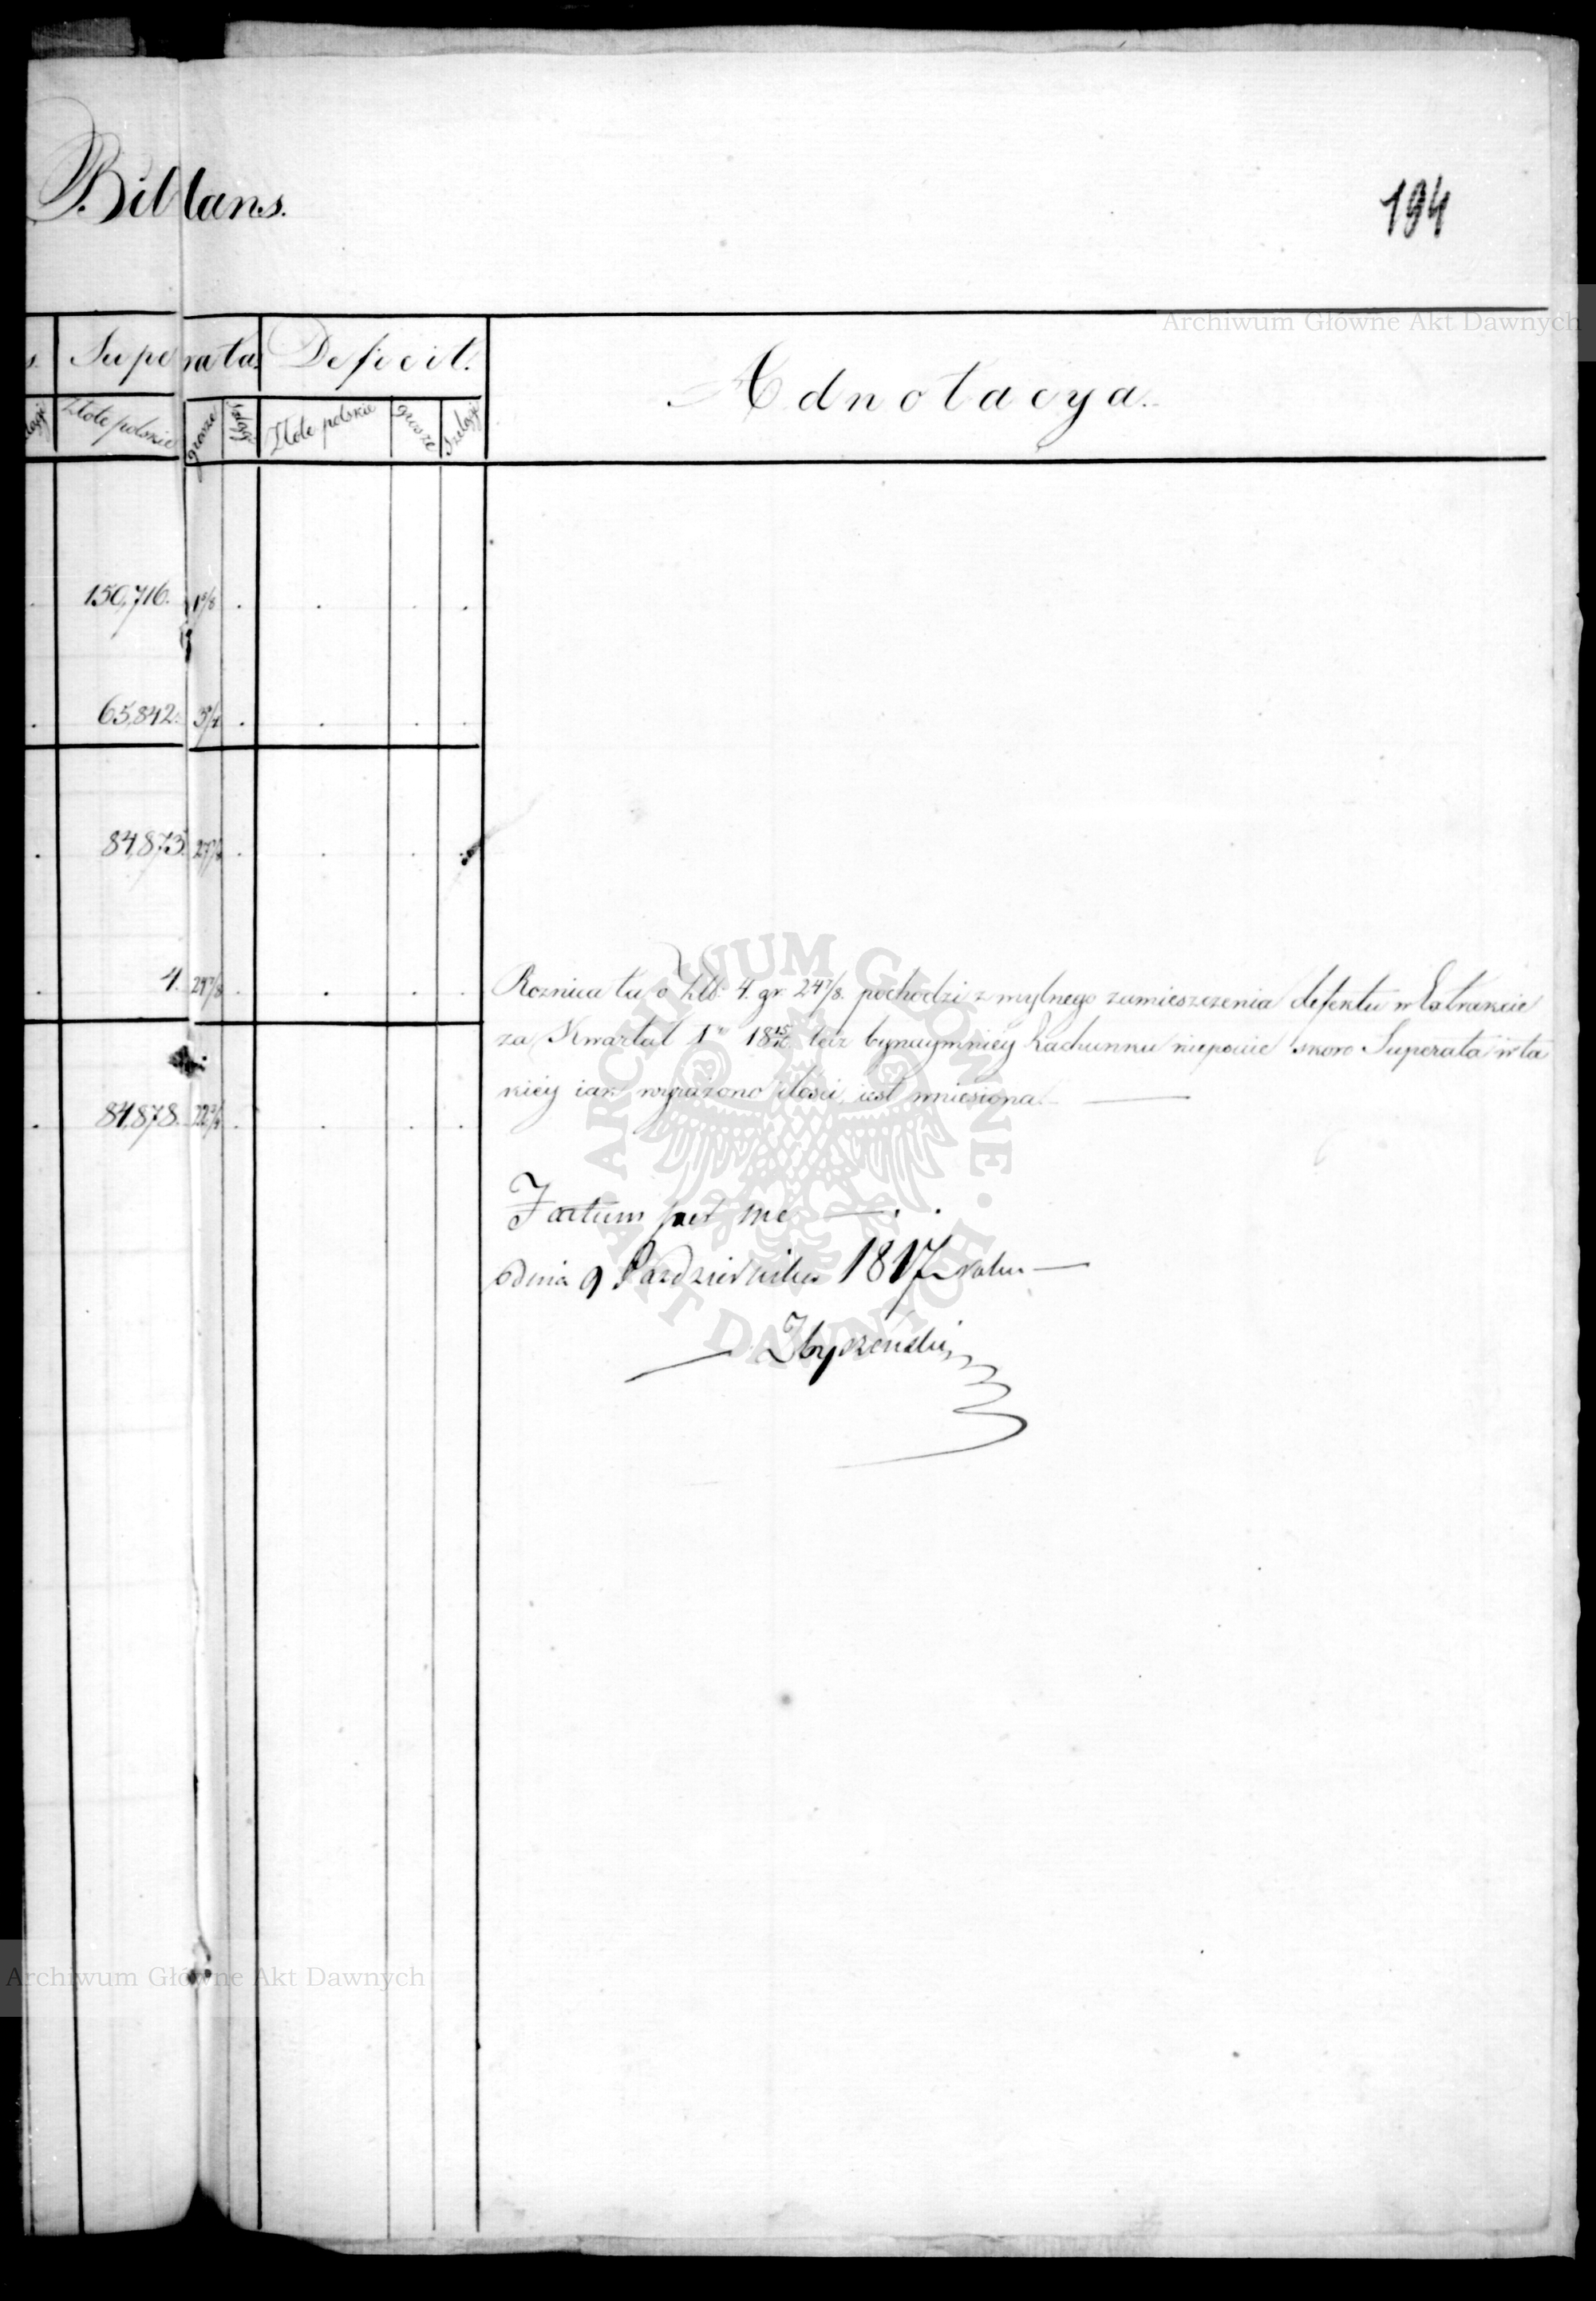 Billans.
194
Archiwum Główne Akt Dawnych
Superata. Deficit. Adnotacya.
Złote polskie grosze Szelągi Złote polskie grosze Szelągi
150,716.
65,842.
84,873.
4. 24 7/8 Roznica ta o Złt. 4. gr. 24 7/8. pochodzi z mylnego zamieszczenia defektu w Extrakcie
za Kwartał 1o 18 15/16 lecz bynaymniey Rachunku niepsuie skoro Superata w ta
kiéy iak wyrażono ilości iest wniesiona.
84,878.
Factum per me
dnia 9 Pazdziernika 1817 roku
ARCHIWUM GŁÓWNE AKT DAWNYCH
Archiwum Główne Akt Dawnych